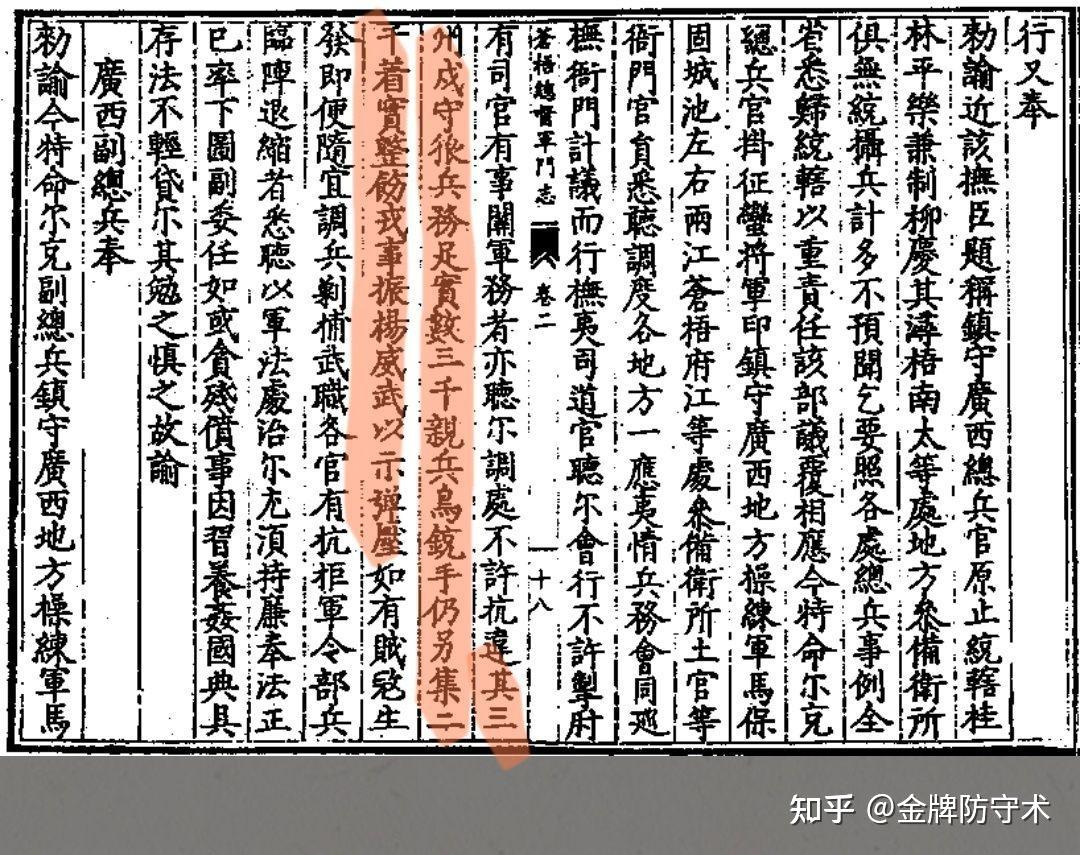 行又奉
勑諭近該撫臣題稱鎮守廣西總兵官原止統轄桂
林平樂兼制柳慶其潯梧南太等處地方叅備衛所
俱無統攝兵計多不預聞乞要照各處總兵事例全
省悉歸統轄以重責任該部議覆相應今特命尔充
總兵官掛征蠻將軍印鎮守廣西地方操練軍馬保
固城池左右兩江蒼梧府江等處叅備衛所土官等
衙門官員悉聽調度各地方一應夷情兵務會同廵
撫衙門計議而行撫夷司道官聽尔會行不許掣肘
蒼梧總督軍門志 卷二 十八
有司官有事關軍務者亦聽尔調處不許抗違其三
州戍守狼兵務足實數三千親兵鳥銃手仍另集二
千着實整飭戎事振楊威武以示弹壓如有賊寇生
發即便隨宜調兵剿捕武職各官有抗拒軍令部兵
臨陣退縮者悉聽以軍法處治尔尤湏持廉奉法正
已率下圖副委任如或貪殘僨事因習養姦國典具
存法不輕貸尔其勉之慎之故諭
廣西副總兵奉
勑諭今特命尔充副總兵鎮守廣西地方操練軍馬
知乎 @金牌防守术